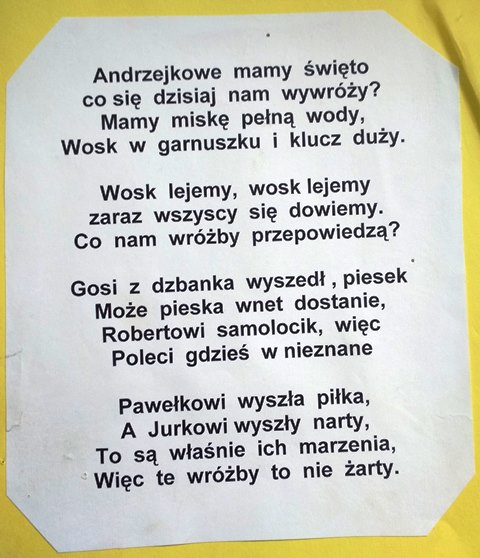 Andrzejkowe mamy święto
co się dzisiaj nam wywróży?
Mamy miskę pełną wody,
Wosk w garnuszku i klucz duży.
Wosk lejemy, wosk lejemy
zaraz wszyscy się dowiemy.
Co nam wróżby przepowiedzą?
Gosi z dzbanka wyszedł , piesek
Może pieska wnet dostanie,
Robertowi samolocik, więc
Poleci gdzieś w nieznane
Pawełkowi wyszła piłka,
A Jurkowi wyszły narty,
To są właśnie ich marzenia,
Więc te wróżby to nie żarty.